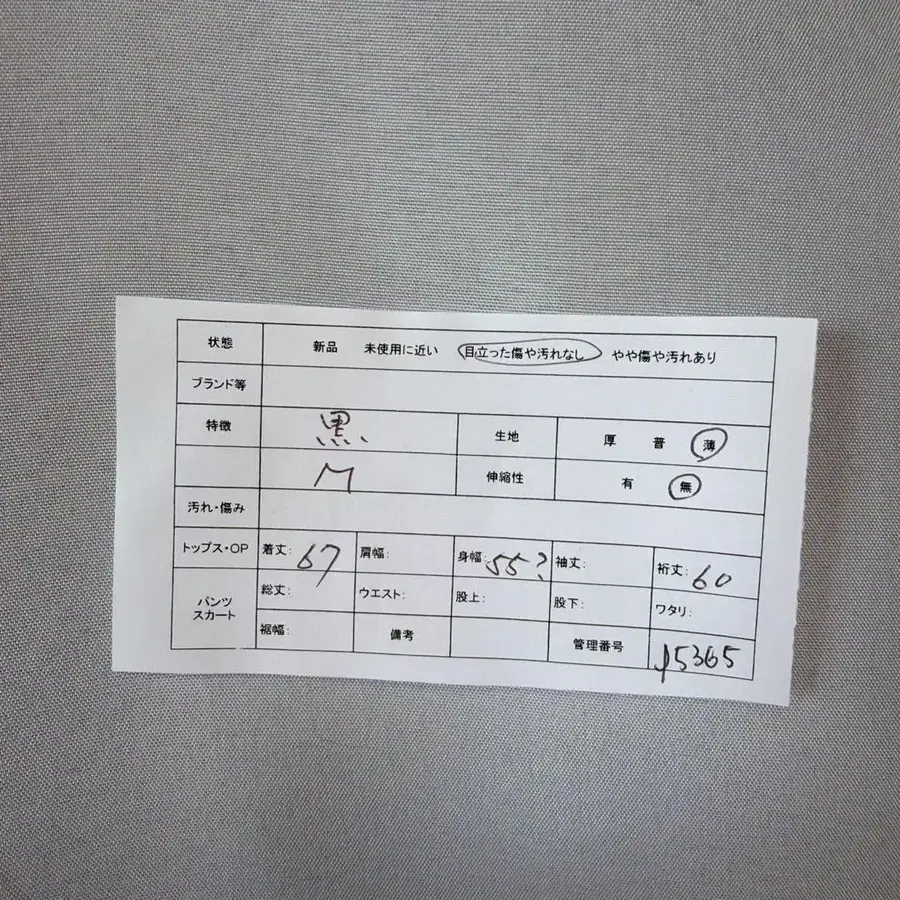 状態 新品 未使用に近い 目立った傷や汚れなし やや傷や汚れあり
ブランド等
特徴 黒、 生地 厚 普 薄
M 伸縮性 有 無
汚れ・傷み
トップス・OP 着丈: 67 肩幅: 身幅: 55? 袖丈: 裄丈: 60
パンツ
スカート
総丈: ウエスト: 股上: 股下: ワタリ:
裾幅: 備考 管理番号 15365